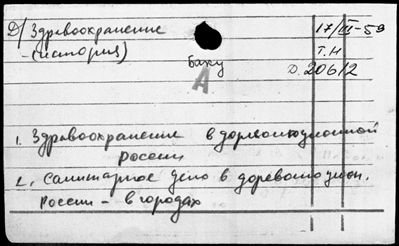 Д/ Здравоохранение 17/III-59
-(история) Т.Н
Баку Д. 206/2
А
1. Здравоохранение в дореволюционной
России
2. Санитарное дело в дореволюцион.
России - в городах